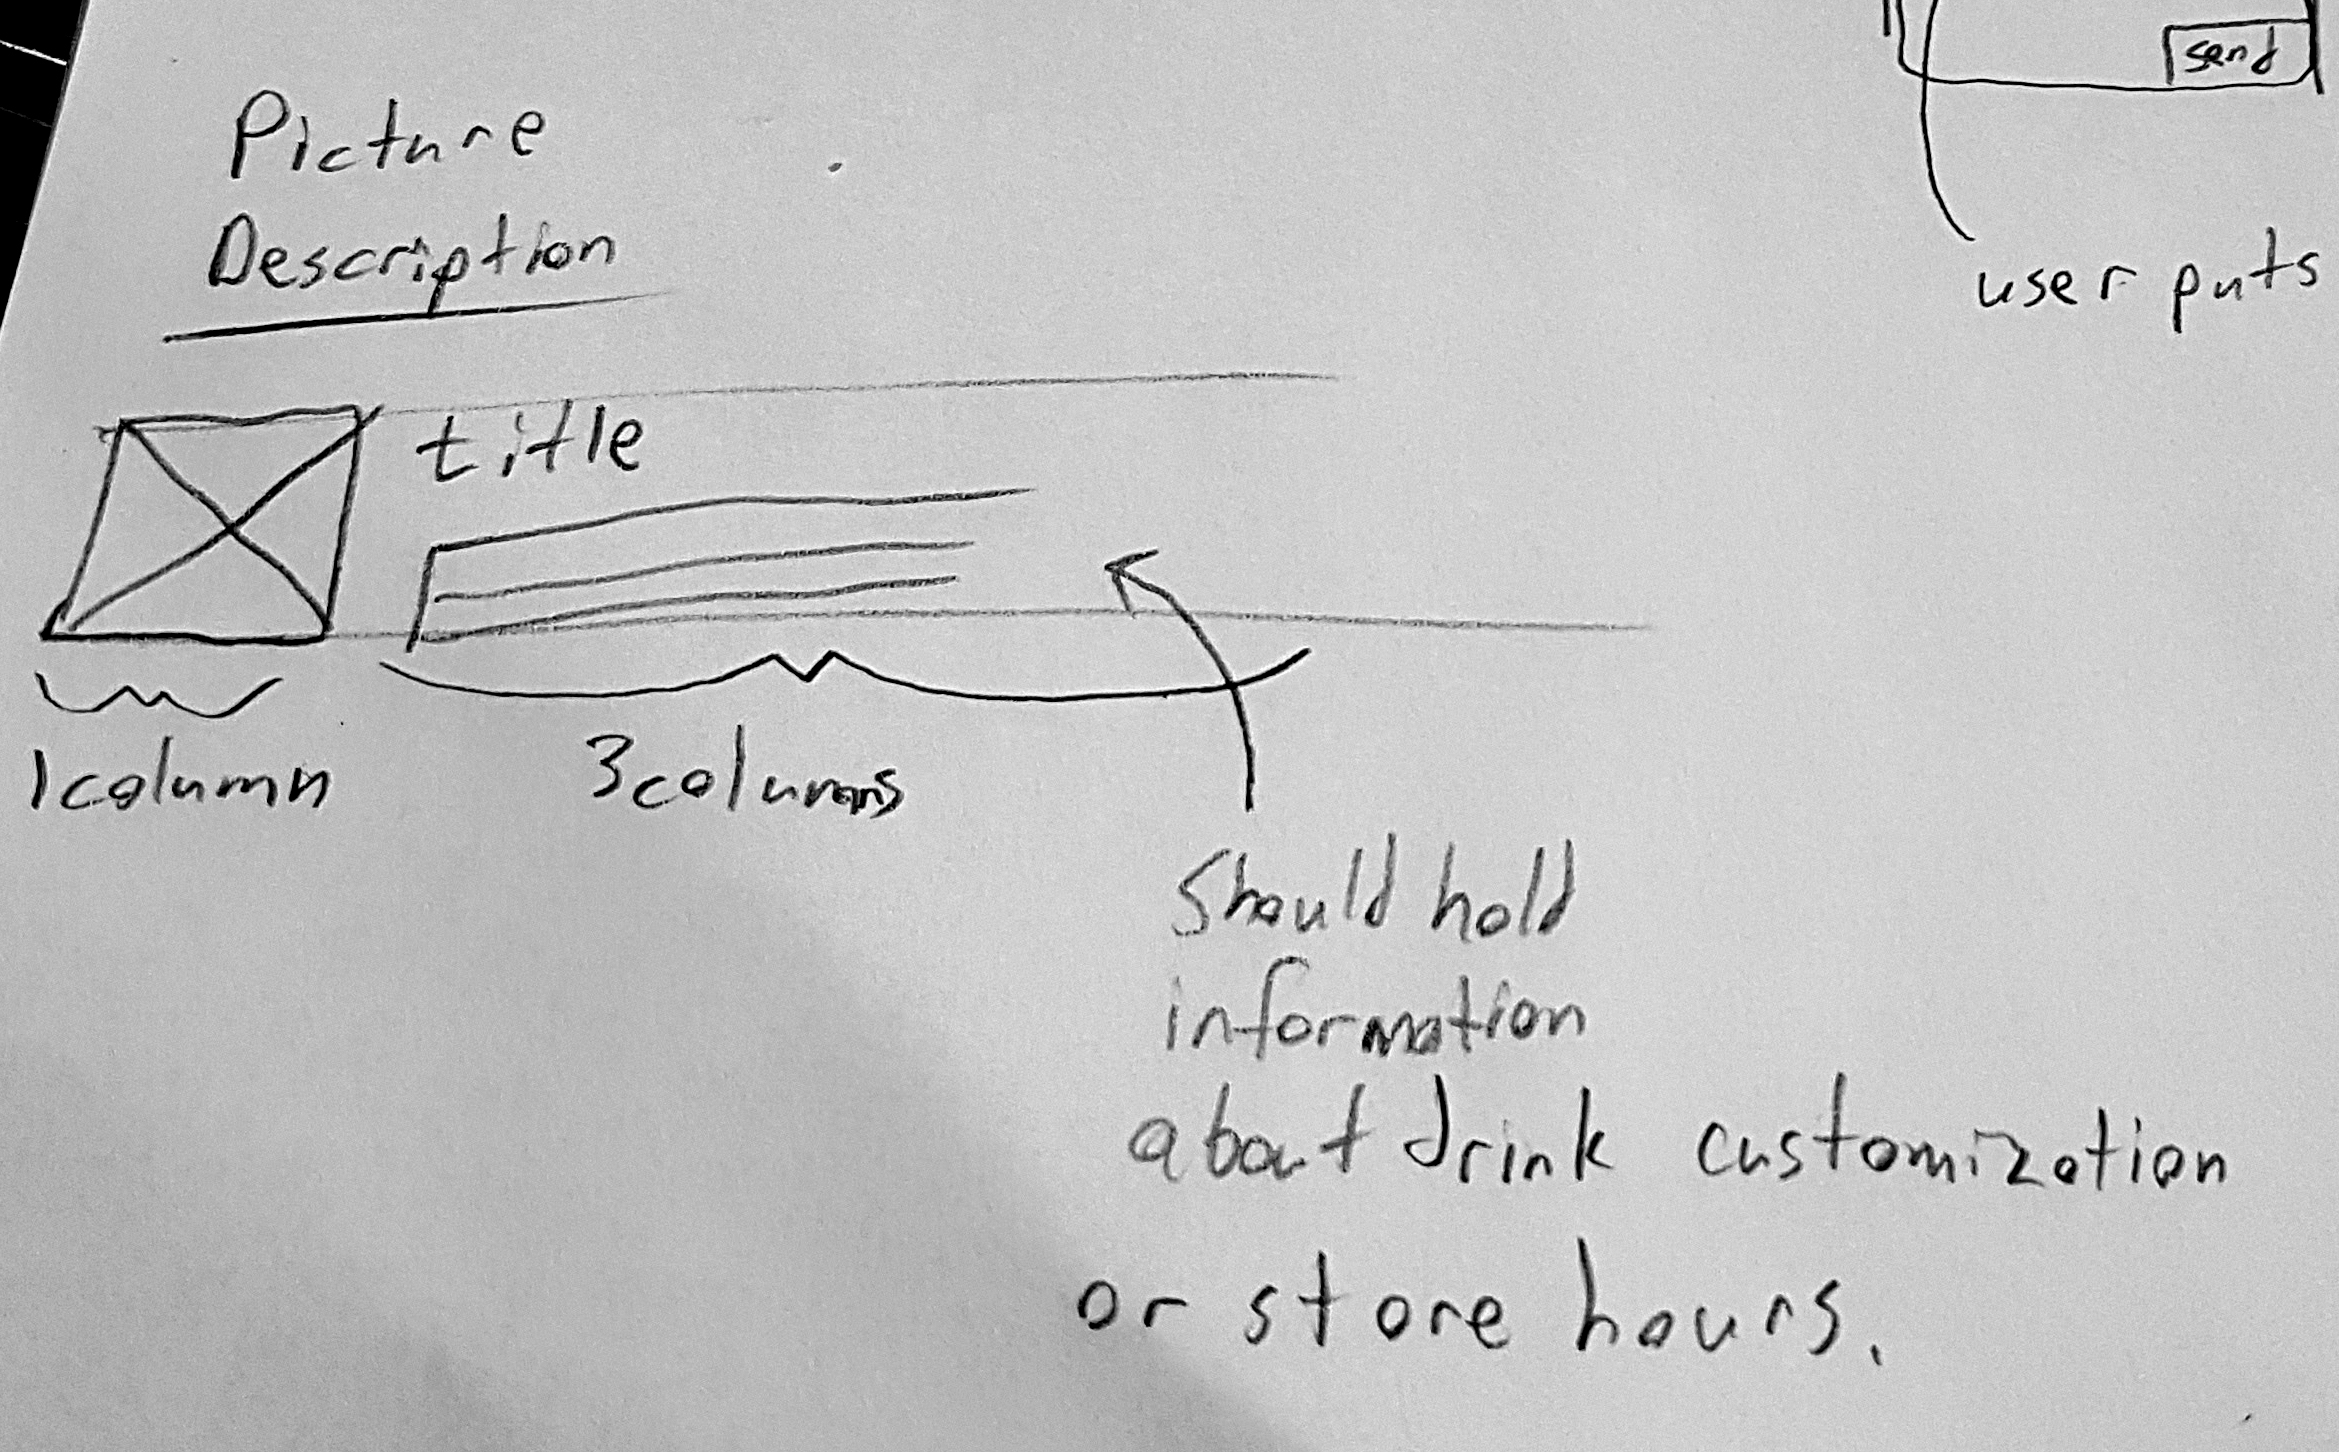 send
user puts
Picture
Description
title
1 column
3 columns
Should hold
information
about drink customization
or store hours.